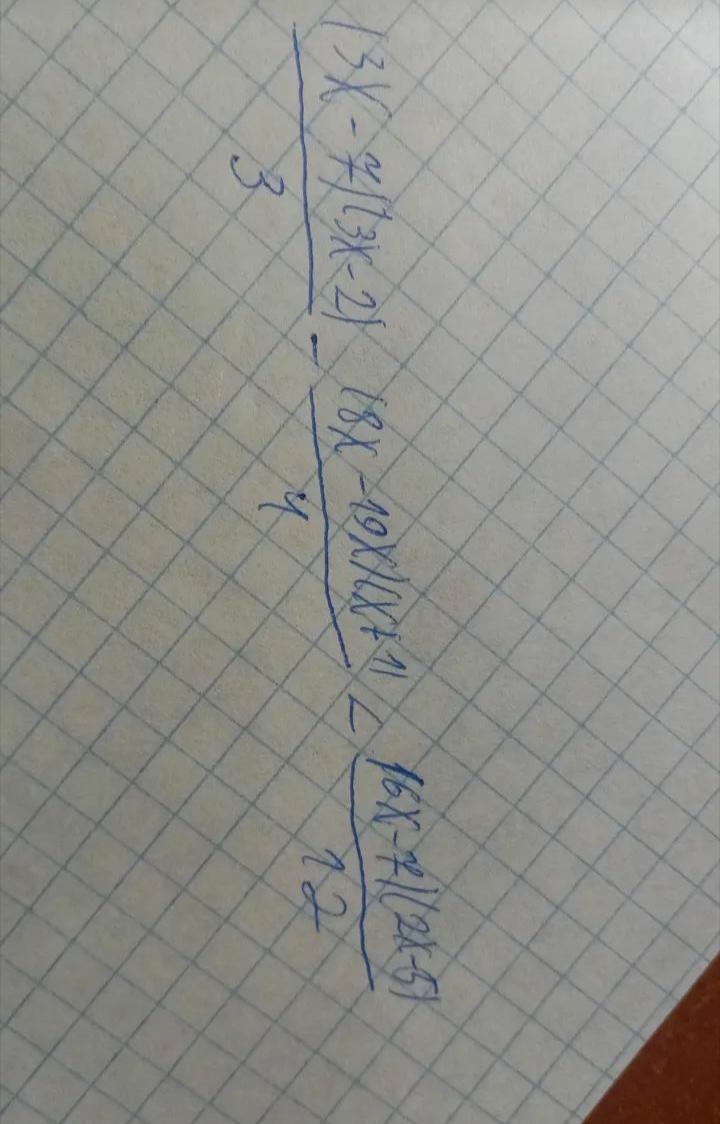 (3x-7)(3x-2) / 3 - (8x-19x)(x+1) / 4 < (6x-7)(2x-5) / 12